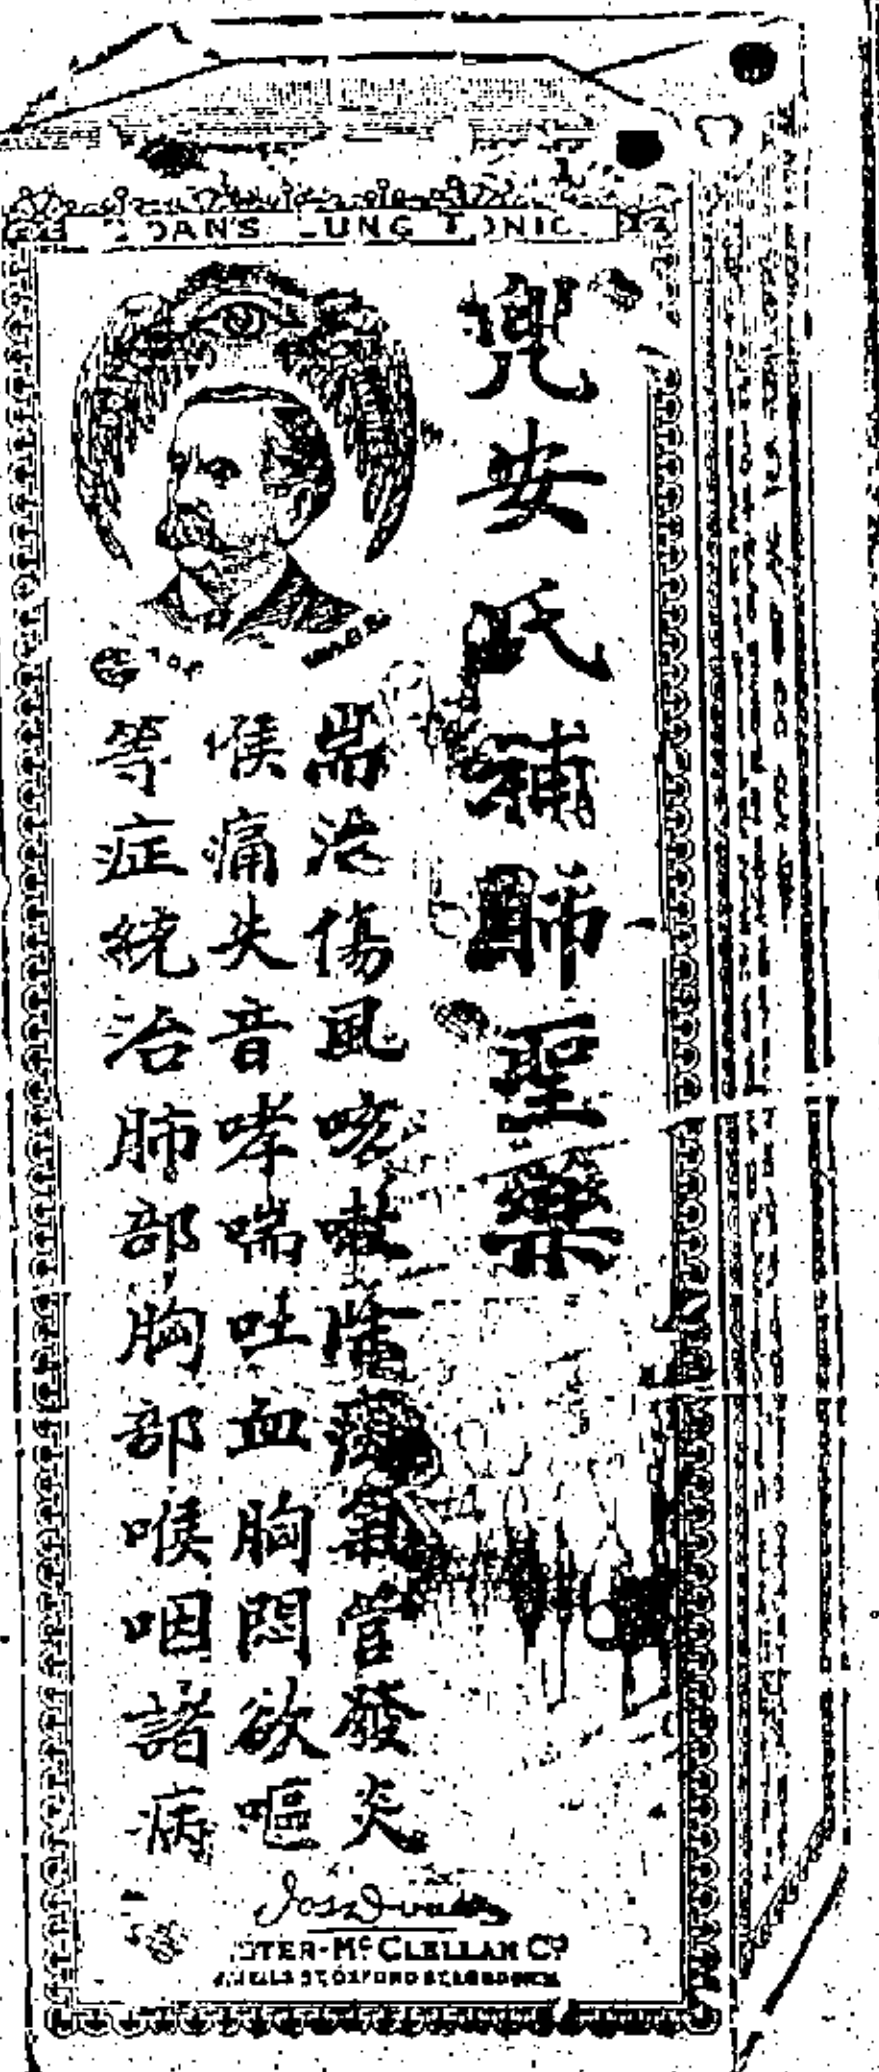 DOAN'S LUNG TONIC
兜安氏補肺聖藥
耑治傷風咳嗽氣管發炎
喉痛失音哮喘吐血胸悶欲嘔
等症統治肺部胸部喉咽諸病
FOSTER-McCLELLAN Co